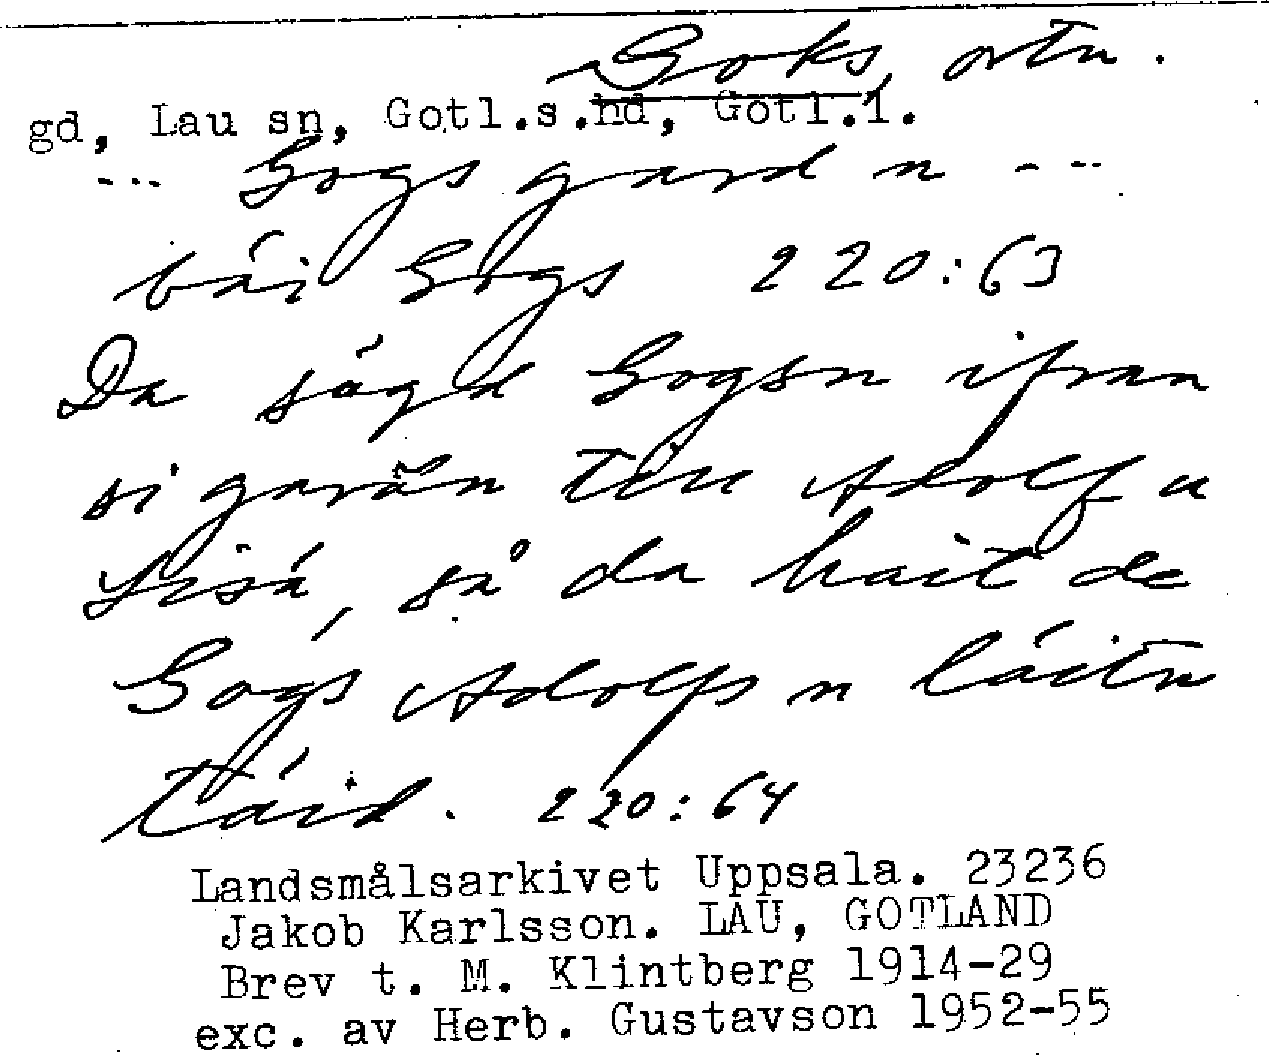 Goks, ortn.
gd, Lau sn, Gotl.s.hd, Gotl.l.
... Gogs gard n ...
bái Gogs 220:63
Da sögd Gogsn ifran
si garån till Adolf u
Lisá, så da hait de
Gogs Adolfs n láitn
táid. 220:64
Landsmålsarkivet Uppsala. 23236
Jakob Karlsson. LAU, GOTLAND
Brev t. M. Klintberg 1914-29
exc. av Herb. Gustavson 1952-55